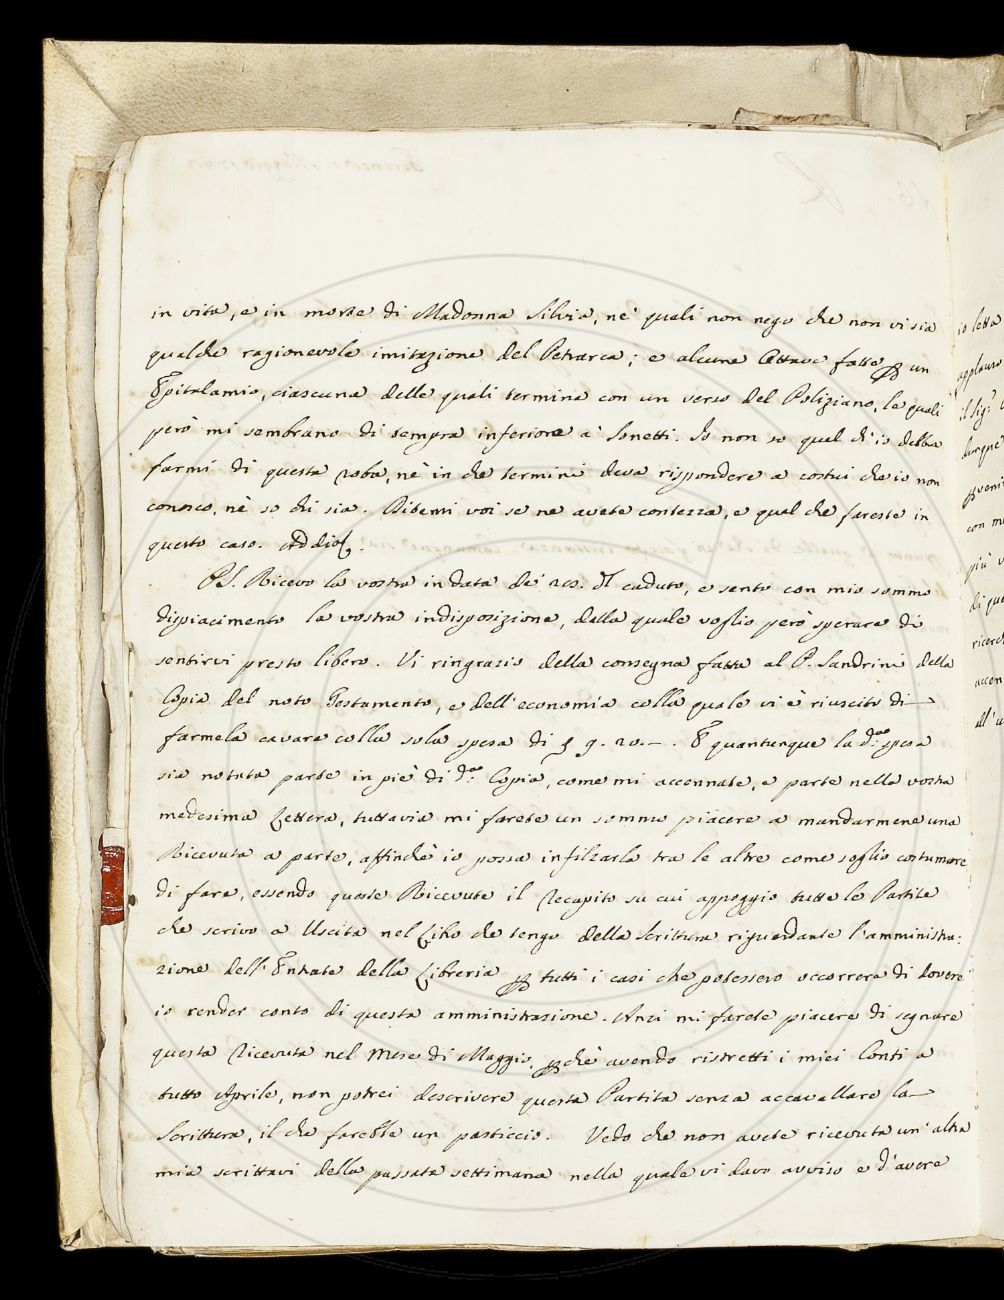 in vita, e in morte di Madonna Silvia, ne' quali non nego che non vi sia
qualche ragionevole imitazione del Petrarca; e alcune Ottave fatte per un
Epitalamio, ciascuna delle quali termina con un verso del Poliziano, le quali
però mi sembrano di tempra inferiore a' Sonetti. Io non so qual ch'io debba
farmi di questa roba, nè in che termini deva rispondere a costui che io non
conosco, nè so chi sia. Ditemi voi se ne avete contezza, e qual che fareste in
questo caso. Addio.
P.S. Ricevo la vostra in data de' 20. del caduto, e sento con mio sommo
dispiacimento la vostra indisposizione, della quale voglio però sperare di
sentirvi presto libero. Vi ringrazio della consegna fatta al P. Sandrini della
Copia del noto Testamento, e dell'economia colla quale vi è riuscito di
farmela cavare colla sola spesa di 9. 20.—. E quantunque la d.ª spesa
sia notata parte in piè di d.ª Copia, come mi accennate, e parte nella vostra
medesima Lettera, tuttavia mi farete un sommo piacere a mandarmene una
Ricevuta a parte, affinchè io possa infilzarla tra le altre come soglio costumare
di fare, essendo queste Ricevute il Recapito su cui appoggio tutte le Partite
che scrivo a Uscita nel Libro che tengo della Scrittura riguardante l'amministra:
zione dell'Entrate della Libreria per tutti i casi che potessero occorrere di dovere
io render conto di questa amministrazione. Anzi mi farete piacere di segnare
questa Ricevuta nel Mese di Maggio, perchè avendo ristretti i miei Conti a
tutto Aprile, non potrei descrivere questa Partita senza accavallare la
Scrittura, il che farebbe un pasticcio. Vedo che non avete ricevuta un'altra
mia scrittavi della passata settimana nella quale vi davo avviso e d'avere